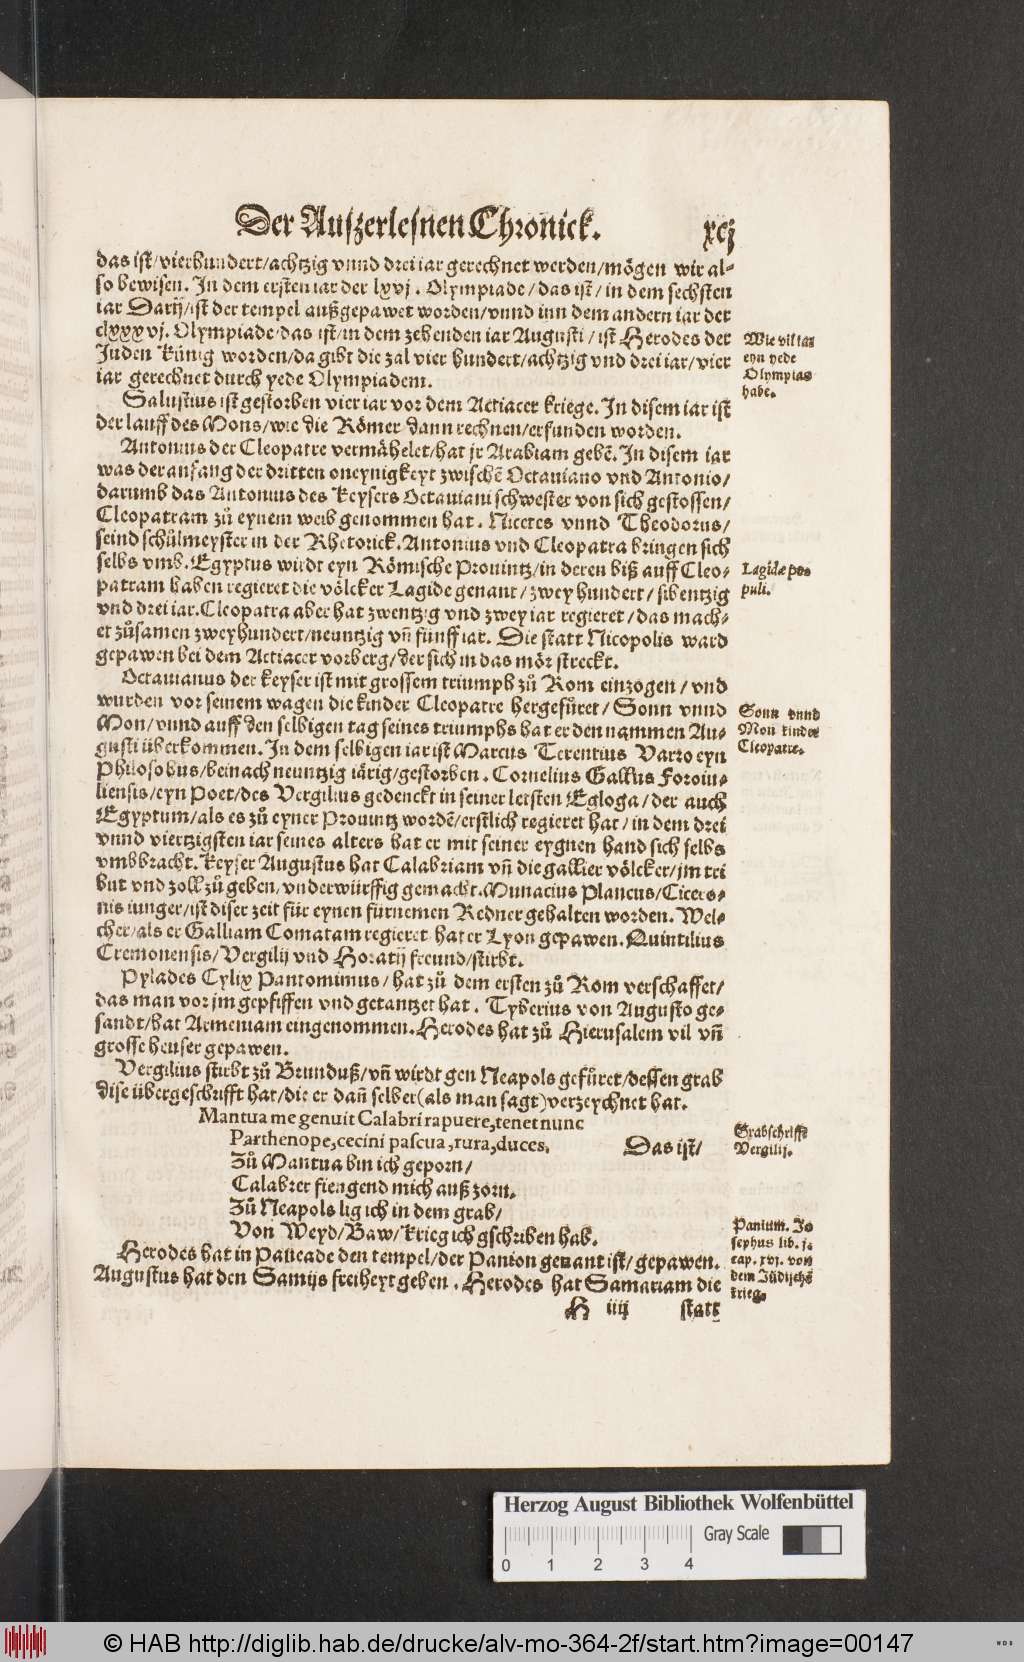 Der Auſzerleſnen Chronick. xcj
das iſt/vierhundert/achtzig vnnd drei iar gerechnet werden/mögen wir al-
ſo bewiſen. In dem erſten iar der lxvj. Olympiade/das iſt/in dem ſechſten
iar Darij/iſt der tempel außgepawet worden/vnnd inn dem andern iar der
clxxxvj. Olympiade/das iſt/in dem zehenden iar Auguſti/iſt Herodes der
Juden Künig worden/da gibt die zal vier hundert/achtzig vnd drei iar/vier
iar gerechnet durch yede Olympiadem.
Wie vil iar
eyn yede
Olympias
habe.
Saluſtius iſt geſtorben vier iar vor dem Actiacer kriege. In diſem iar iſt
der lauff des Mons/wie die Römer dann rechnen/erfunden worden.
Antonius der Cleopatre vermähelet/hat jr Arabiam gebē. In diſem iar
was der anfang der dritten oneynigkeyt zwiſchē Octauiano vnd Antonio/
darumb das Antonius des Keyſers Octauiani ſchweſter von ſich geſtoſſen/
Cleopatram zů eynem weib genommen hat. Nicetes vnnd Theodorus/
ſeind ſchůlmeyſter in der Rhetorick. Antonius vnd Cleopatra bringen ſich
ſelbs vmb. Egyptus wirdt eyn Römiſche Prouintz/in deren biß auff Cleo-
patram haben regieret die völcker Lagide genant/zwey hundert/ſibentzig
vnd drei iar. Cleopatra aber hat zwentzig vnd zwey iar regieret/das mach-
et zůſamen zweyhundert/neuntzig vñ fünff iar. Die ſtatt Nicopolis ward
gepawen bei dem Actiacer vorberg/der ſich in das mör ſtreckt.
Lagidæ po-
puli.
Octauianus der keyſer iſt mit groſſem triumph zů Rom einzogen/vnd
wurden vor ſeinem wagen die kinder Cleopatre hergefüret/Sonn vnnd
Mon/vnnd auff den ſelbigen tag ſeines triumphs hat er den nammen Au-
guſti überkommen. In dem ſelbigen iar iſt Marcus Terentius Varro eyn
Philoſobus/beinach neuntzig iärig/geſtorben. Cornelius Gallus Foroiu-
lienſis/eyn Poet/des Vergilius gedenckt in ſeiner letſten Egloga/der auch
Egyptum/als es zů eyner Prouintz wordē/erſtlich regieret hat/in dem drei
vnnd viertzigſten iar ſeines alters hat er mit ſeiner eygnen hand ſich ſelbs
vmbbracht. Keyſer Auguſtus hat Calabriam vñ die gallier völcker/jm tri
but vnd zoll zů geben/vnderwürffig gemacht. Munacius Plancus/Cicero-
nis iunger/iſt diſer zeit für eynen fürnemen Redner gehalten worden. Wel-
cher/als er Galliam Comatam regieret/hat er Lyon gepawen. Quintilius
Cremonenſis/Vergilij vnd Horatij freund/ſtirbt.
Sonn vnnd
Mon kinder
Cleopatre.
Pylades Cylix Pantomimus/hat zů dem erſten zů Rom verſchaffet/
das man vor jm gepfiffen vnd getantzet hat. Tyberius von Auguſto ge-
ſandt/hat Armeniam eingenommen. Herodes hat zů Hieruſalem vil vñ
groſſe heuſer gepawen.
Vergilius ſtirbt zů Brunduß/vñ wirdt gen Neapols gefüret/deſſen grab
diſe übergeſchrifft hat/die er dañ ſelber (als man ſagt) verzeychnet hat.
Mantua me genuit Calabri rapuere, tenet nunc
Parthenope, cecini paſcua, rura, duces. Das iſt/
Zů Mantua bin ich geporn/
Calabrer fiengend mich auß zorn.
Zů Neapols lig ich in dem grab/
Von Weyd/Baw/krieg ich gſchriben hab.
Grabſchrifft
Vergilij.
Herodes hat in Paneade den tempel/der Panion genant iſt/gepawen.
Auguſtus hat den Samijs freiheyt geben. Herodes hat Samariam die
Panium. Jo
ſephus lib. j.
cap. xvj. von
dem Jüdiſchē
krieg.
H iiij ſtatt
Herzog August Bibliothek Wolfenbüttel
0 1 2 3 4
Gray Scale
© HAB http://diglib.hab.de/drucke/alv-mo-364-2f/start.htm?image=00147